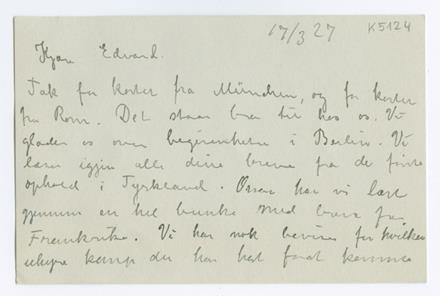 17/3 27
K5124
Kjære Edvard.
Tak for kortet fra München, og for kortet
fra Rom. Det staar bra til hos os. Vi
glæder os over begivenhetene i Berlin. Vi
læser igjen alle dine brevene fra de første
ophold i Tyrkland. Ossaa har vi læst
gjennem en hel bunke med breve fra
Frankrike. Vi har nok beviser for hvilken
uhyre kamp du har hat forat komme